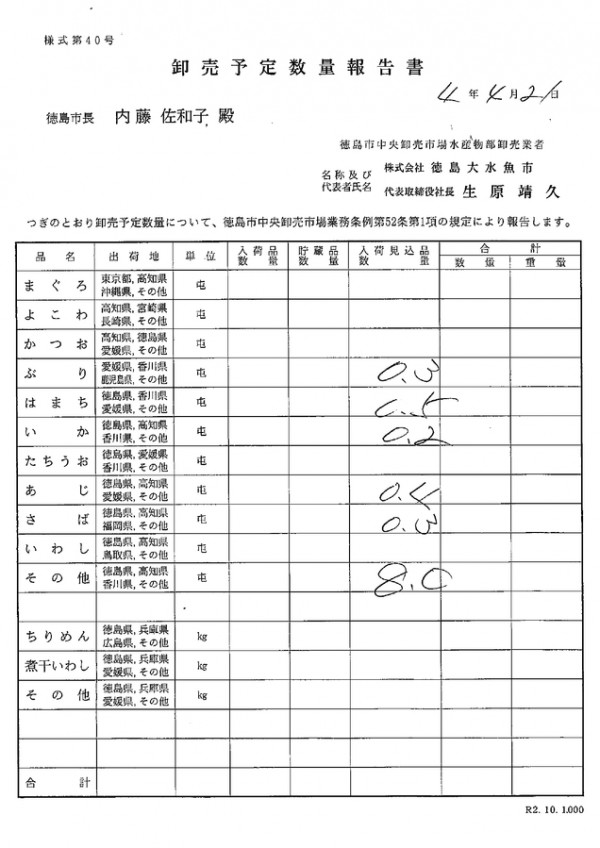 様式第40号
卸売予定数量報告書
4年4月21日
徳島市長 内藤 佐和子 殿
徳島市中央卸売市場水産物部卸売業者
名称及び 株式会社 徳島大水魚市
代表者氏名 代表取締役社長 生原靖久
つぎのとおり卸売予定数量について、徳島市中央卸売市場業務条例第52条第1項の規定により報告します。
品名 出荷地 単位 入荷品数量 貯蔵品数量 入荷見込品数量 合計
数量 重量
まぐろ 東京都, 高知県 沖縄県, その他 屯
よこわ 高知県, 宮崎県 長崎県, その他 屯
かつお 高知県, 徳島県 愛媛県, その他 屯
ぶり 愛媛県, 香川県 鹿児島県, その他 屯 0.3
はまち 徳島県, 香川県 愛媛県, その他 屯
いか 徳島県, 高知県 香川県, その他 屯 0.2
たちうお 徳島県, 愛媛県 香川県, その他 屯
あじ 徳島県, 高知県 愛媛県, その他 屯 0.4
さば 徳島県, 高知県 福岡県, その他 屯 0.3
いわし 徳島県, 高知県 鳥取県, その他 屯
その他 徳島県, 高知県 香川県, その他 屯 8.0
ちりめん 徳島県, 兵庫県 広島県, その他 kg
煮干いわし 徳島県, 兵庫県 愛媛県, その他 kg
その他 徳島県, 兵庫県 愛媛県, その他 kg
合計
R2. 10. 1.000